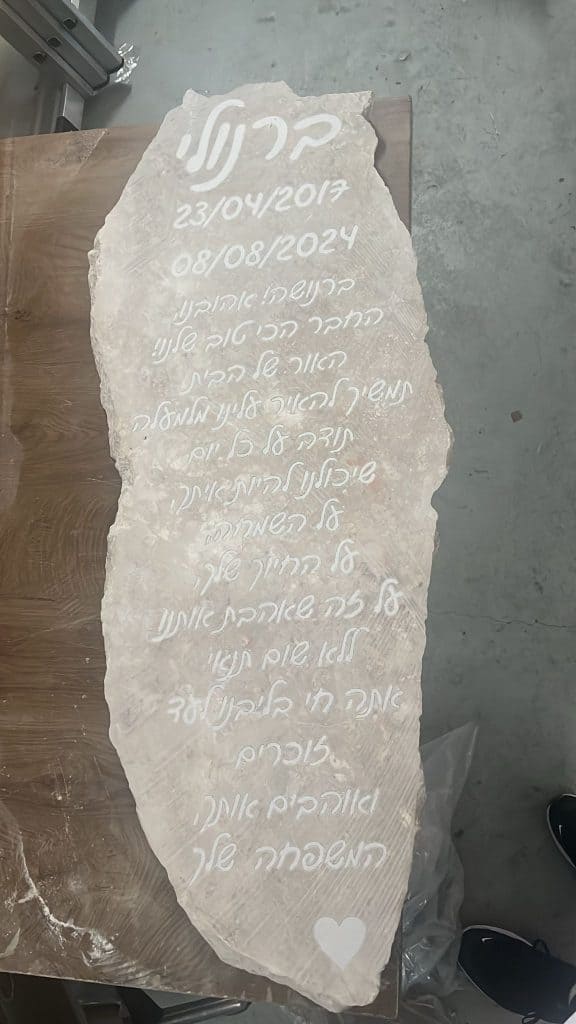 ברנולי
23/04/2017
08/08/2024
ברנושה! אהובנו,
החבר הכי טוב שלנו!
האור של הבית
תמשיך להאיר עלינו מלמעלה
תודה על כל יום
שיכולנו להיות איתך,
על השמחה,
על החיוך שלך,
על זה שאהבת אותנו
ללא שום תנאי
אתה חי בליבנו לעד
זוכרים
ואוהבים אותך
המשפחה שלך